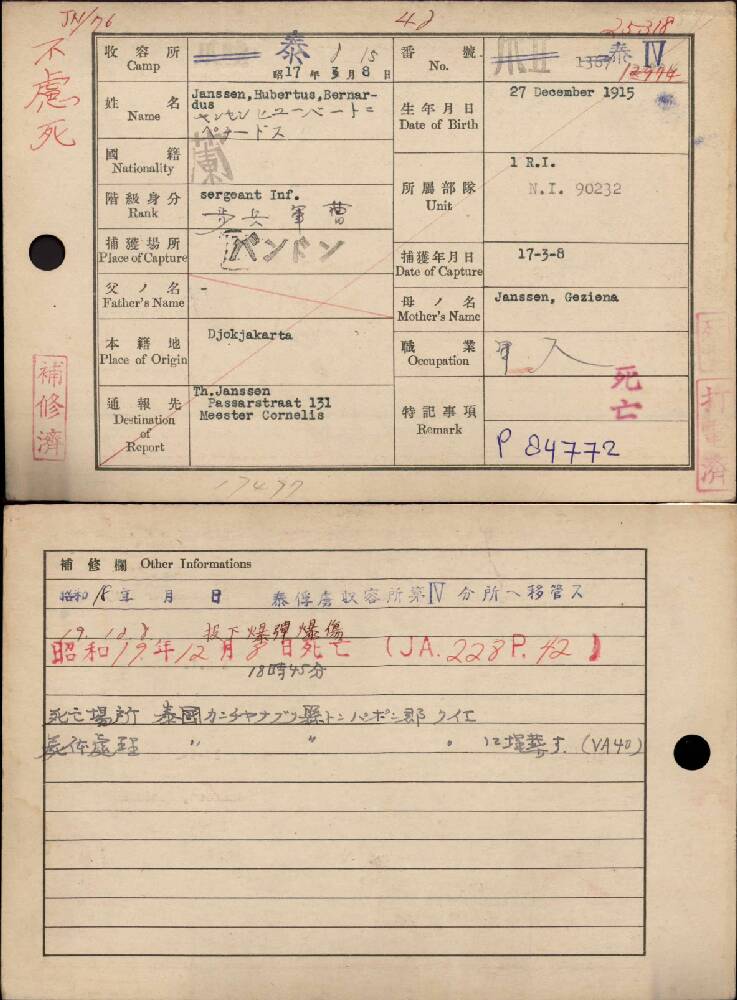 JN/76
48
25318
不慮死
收容所 Camp
泰
8 15
昭17年3月8日
番號 No.
爪II
1387
泰 IV
12974
姓名 Name
Janssen,Hubertus,Bernar-
dus
ヤンセン ヒユーベートニ
ペナードス
生年月日 Date of Birth
27 December 1915
國籍 Nationality
蘭
階級身分 Rank
sergeant Inf.
步兵軍曹
所屬部隊 Unit
1 R.I.
N.I. 90232
捕獲場所 Place of Capture
バンドン
捕獲年月日 Date of Capture
17-3-8
父ノ名 Father's Name
-
母ノ名 Mother's Name
Janssen, Geziena
本籍地 Place of Origin
Djokjakarta
職業 Occupation
軍人
通報先 Destination of Report
Th.Janssen
Passarstraat 131
Meester Cornelis
特記事項 Remark
死亡
P 84772
補修濟
打電濟
17477
補修欄 Other Informations
昭和18年 月 日 泰俘虜収容所第IV分所へ移管ス
19.12.8 投下爆彈爆傷
昭和19年12月8日死亡 (JA.228P.42)
18時45分
死亡場所 泰國カンチャナブリ縣トンパポン郡クイエ
死体處理 〃 〃 。 ニ埋葬す. (VA40)